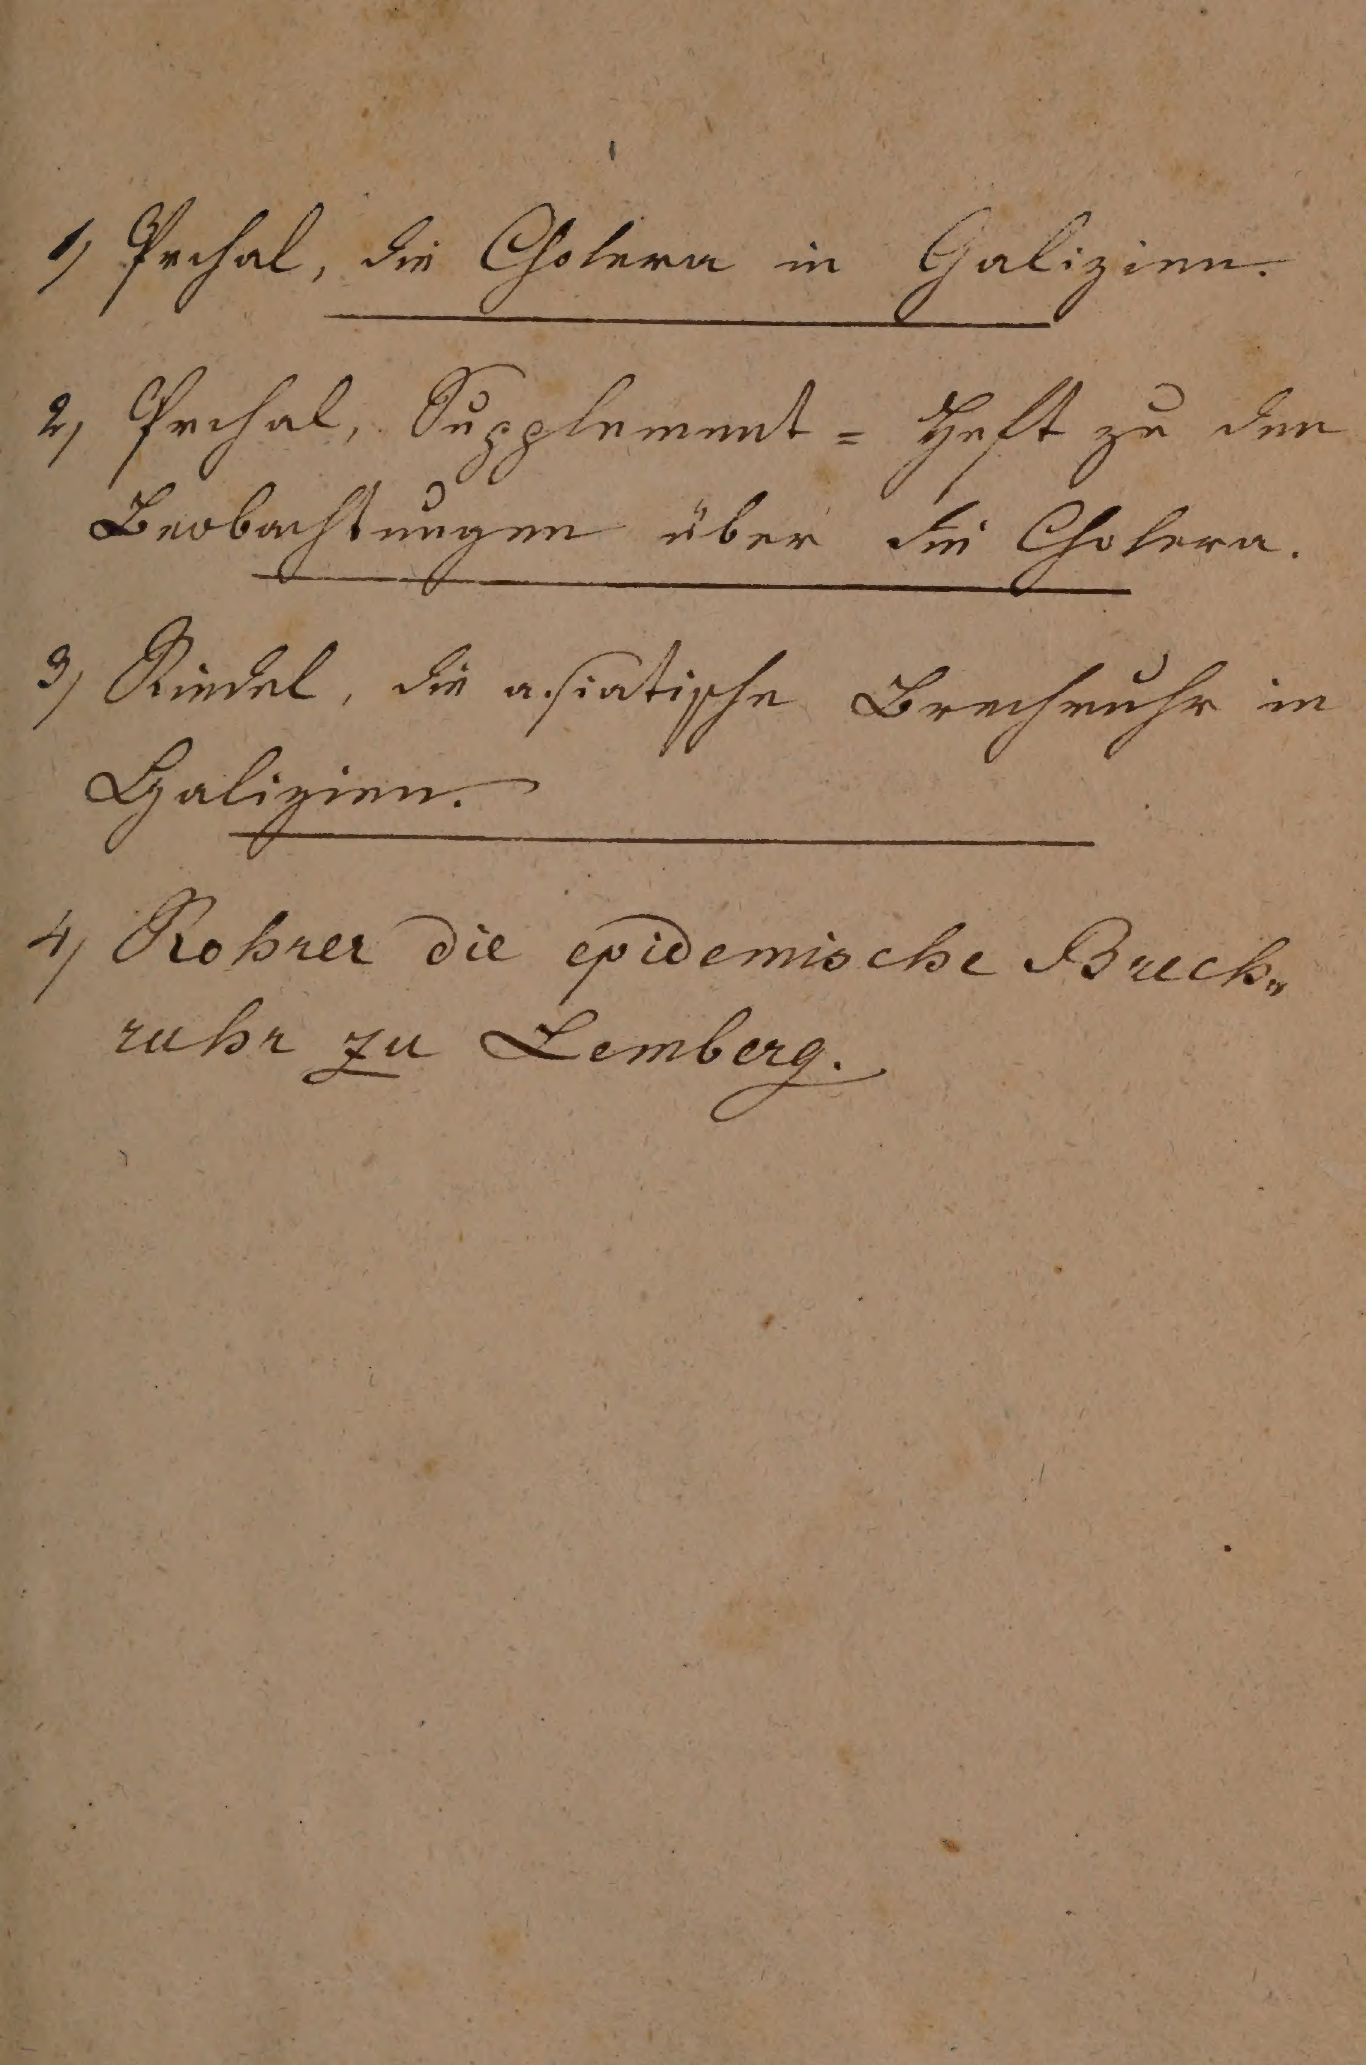 1) Prchal, die Cholera in Galizien.
2) Prchal, Supplement = Heft zu den
Beobachtungen über die Cholera.
3) Riedel, die asiatische Brechruhr in
Galizien.
4) Rohrer die epidemische Brech„
ruhr zu Lemberg.